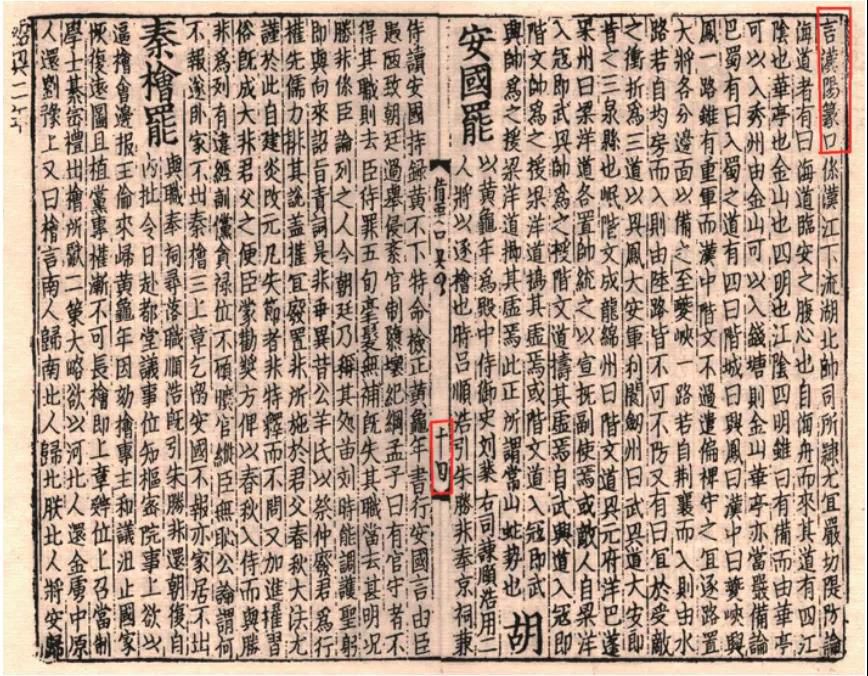 言漢陽篆口係漢江下流湖北帥司所隸尤宜嚴切隄防論
海道者有曰海道臨安之腹心也自海舟而來其道有四江
陰也華亭也金山也四明也江陰四明雖曰有備而由華亭
可以入秀州由金山可以入錢塘則金山華亭亦當嚴備論
巴蜀有曰入蜀之道有四曰階城曰興鳳曰漢中曰夔峽興
鳳一路雖有重軍而漢中階文不過遣偏裨守之宜逐路置
大將各分邊面以備之至夔峽一路若自荆襄而入則由水
路若自均房而入則由陸路皆不可不防又有曰宜於受敵
之衝折為三道以興鳳大安軍利閬劔州曰武興道大安即
昔之三泉縣也岷階文成龍綿州曰階文道興元府洋巴蓬
梁州曰梁洋道各置帥統之以宣抚副使焉或敵人自梁洋
入寇即武興帥為之授階文道擣其虛焉自武興道入寇即
階文帥為之援梁洋道搗其虛焉或階文道入寇即武
興帥為之援梁洋道擣其虛焉此正所謂常山虵勢也 胡
安國罷 以黄龜年為殿中侍御史刘棐右司諫順浩用二
人將以逐檜也時吕順浩引朱勝非奉京祠兼
十四
侍讀安國持録黄不下特命檢正黄龜年書行安國言由臣
貶而致朝廷過舉侵紊官制隳壞紀綱孟子曰有官守者不
得其職則去臣待罪五旬毫髮無補既失其職當去甚明况
勝非係臣論列之人今朝廷乃稱其処苗刘時能調護聖躬
即與向來詔旨責詞是非乖異昔公羊氏以祭仲廢君為行
權先儒力排其說盖權宜廢置非所施於君父春秋大法尤
謹於此自建炎改元凡失節者非特釋而不問又加進擢習
俗既成大非君父之便臣蒙勸奬方俾以春秋入侍而與勝
非為列有違經訓儻貪禄位不顧曠官縱臣無恥公論謂何
不報遂卧家不出秦檜三上章乞留安國不報亦家居不出
秦檜罷 與職奉祠尋落職順浩既引朱勝非還朝復自
批令日赴都堂議事位知樞密院事上欲以
逼檜會邊报王倫來歸黄龜年因劾檜專主和議沮止國家
恢復遠圖且植黨專權漸不可長檜即上章辤位上召當制
學士綦崈禮出檜所獻二策大略欲以河北人還金虜中原
人還劉豫上又曰檜言南人歸南北人歸北朕北人將安歸